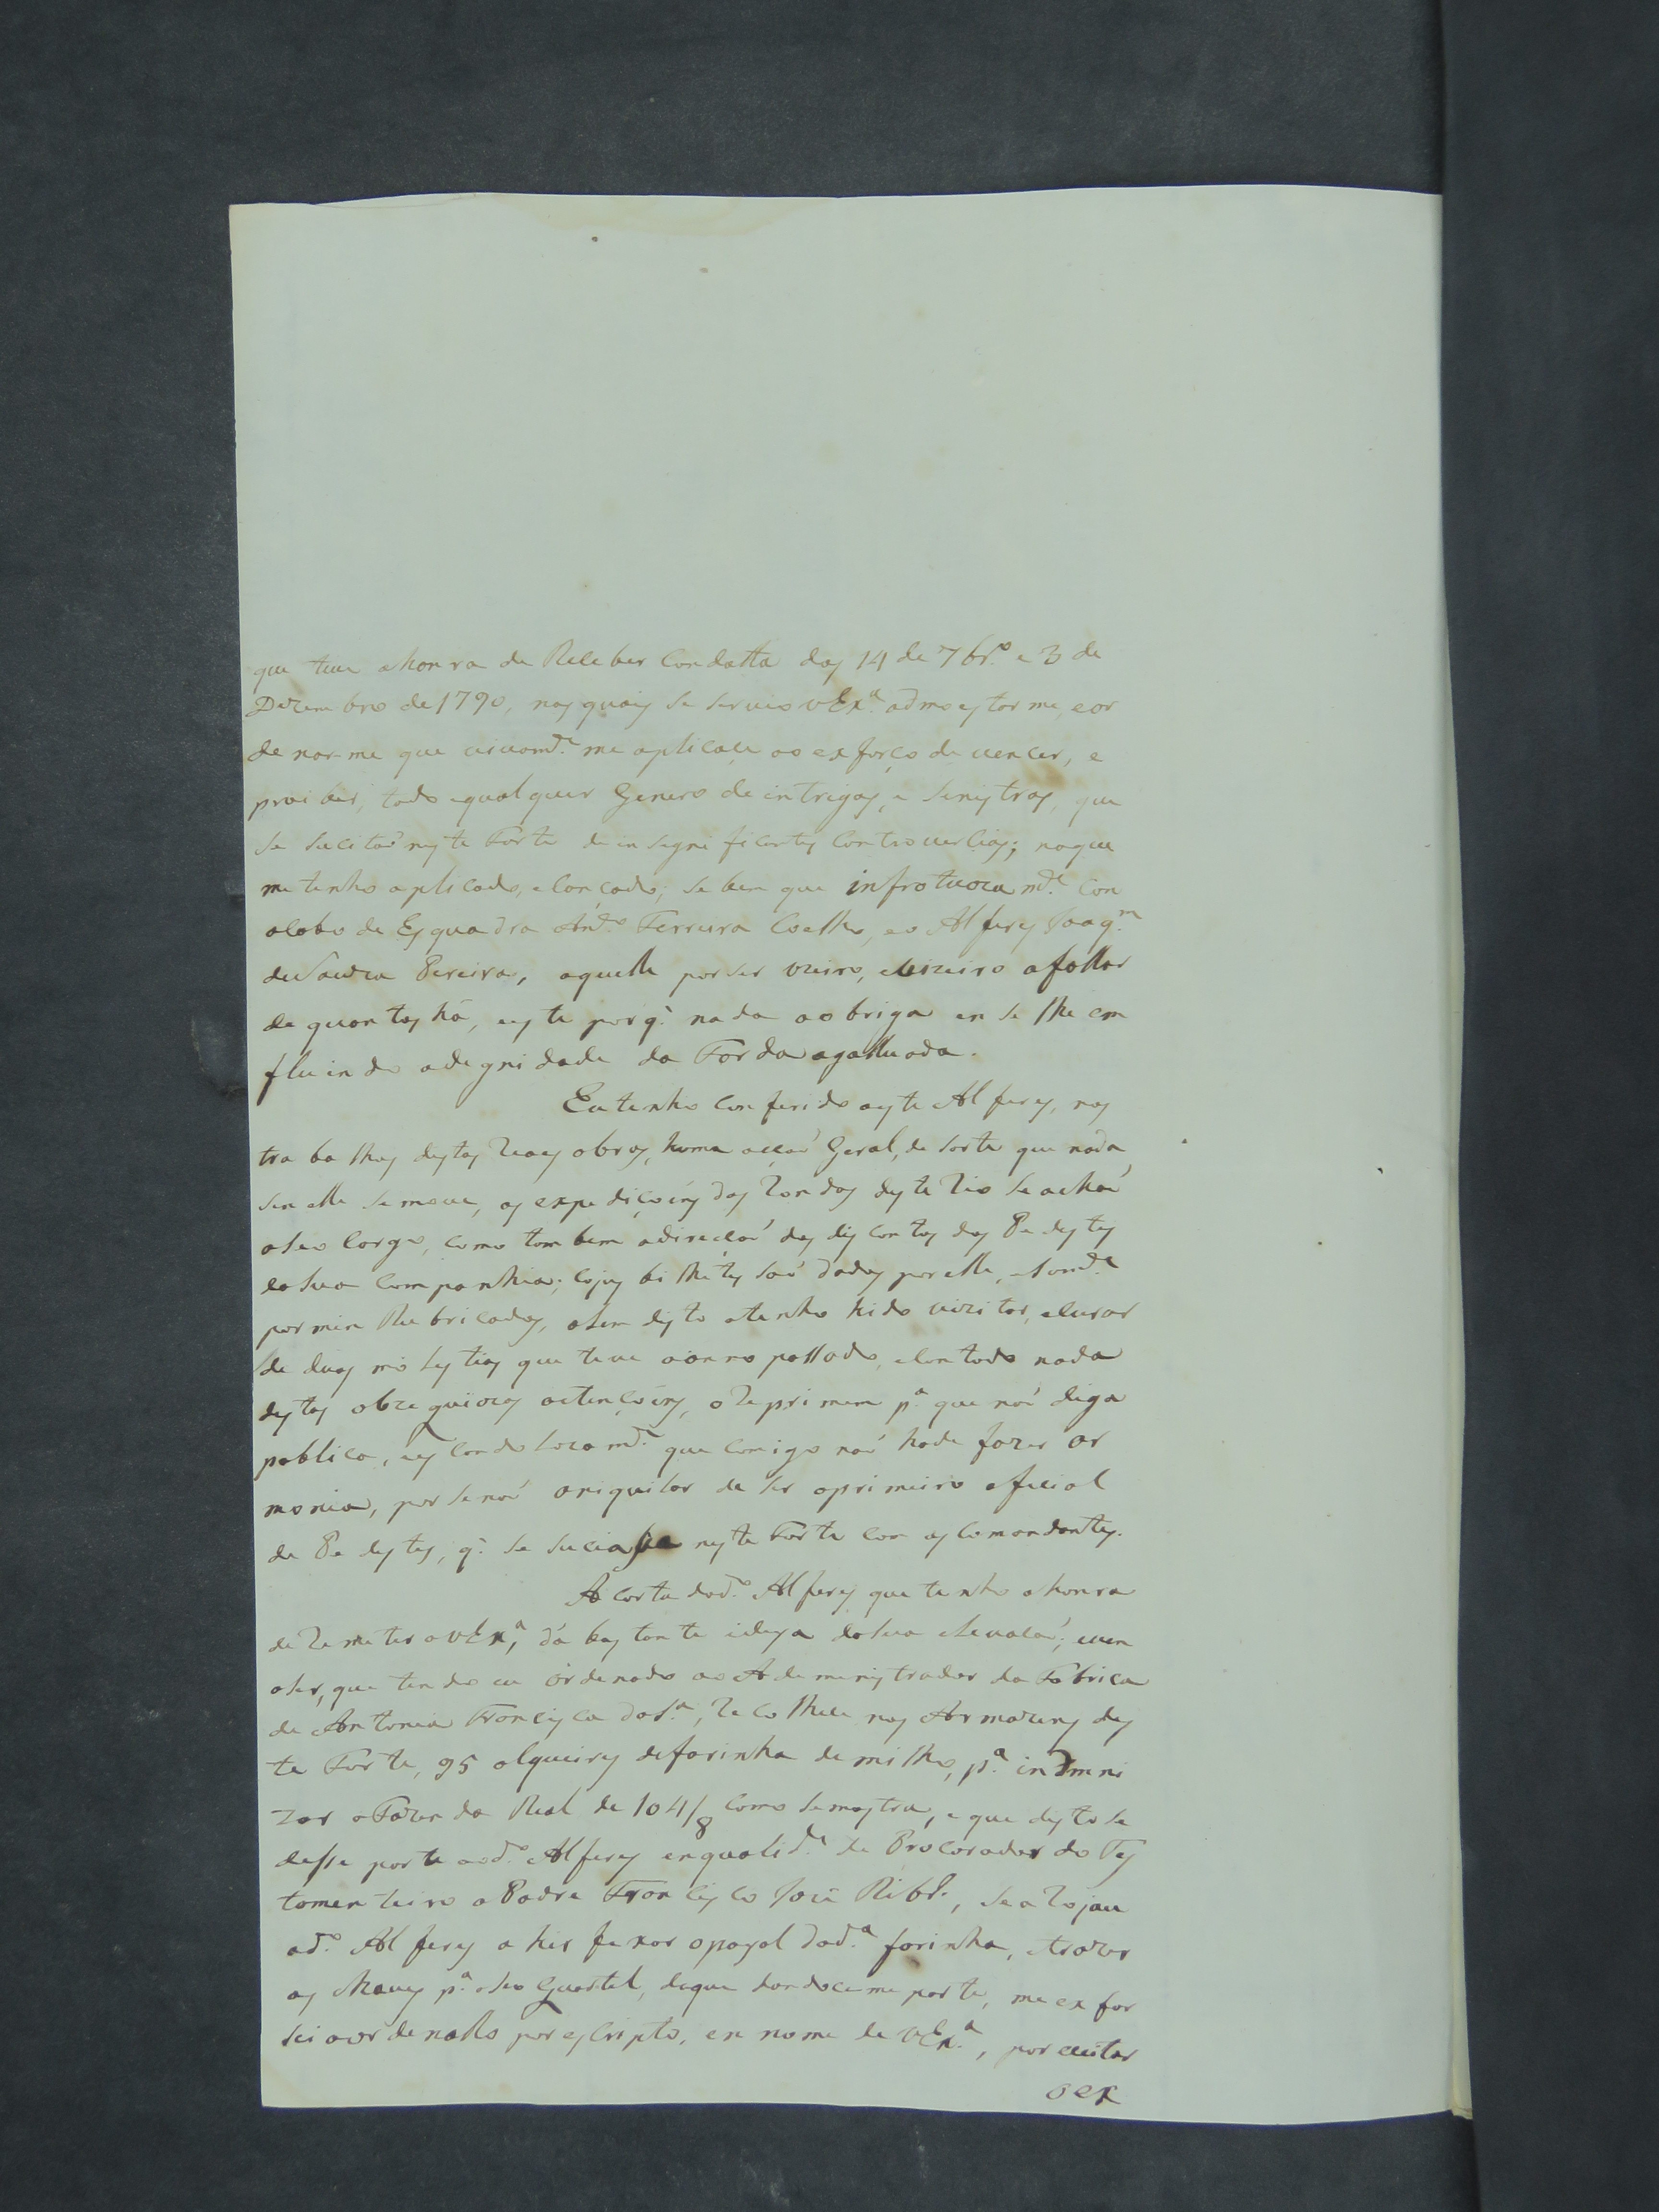 que tive a honra de Receber Con datta das 14 de 7br.º e 3 de
Dezembro de 1790, nas quais Se Servio vEx.ª admoestar me, e or
de nar me que vivam.te me aplicaçe ao exforço de vencer, e
proiber, todo e qual quer Genero de intrigas, e Senistras, que
Se Sucitaõ neste Forte de in Segni ficantes ControverCias; no que
me tenho aplicado, e Cançado; Se bem que infrotuoza m.te Con
o Cabo de Esquadra Ant.º Ferreira Coelho, e o Alferes Joaq.m
de Souza Pereira, aquelle por Ser uzeiro, e Vizeiro a fallar
de quantos há, e este porq. nada o obriga en Se lhe em
fluindo a degnidade da Farda agalluada.
Eu tenho Conferido a este Alferes, nos
tra ba lhos destas Reaes obras, huma acçaõ Geral, de Sorte que nada
Sen elle Se move, as expediçoins das Rondas deste Rio Se achaõ
a Seo Cargo, como tambem a direcçaõ dos dis contos dos Pedestes
da Sua Companhia; Cojos bi lhetes Saõ dados por elle, e Som.te
por min Rubricados, alem disto o tenho hido vizitar, e Curar
de duas molestias que teve o anno passado, e Con todo nada
destas obzequiozas actençoins, o Reprimem p.ª que naõ diga
publica, e es Candeloza m.te que Comigo naõ hade fazer ar
monia, por Se naõ aniquilar de Ser o primeiro oficial
de Pedestes, q. Se Suciaſse neste Forte con os Comandantes.
A Carta do d.º Alferes que tenho a honra
de Remeter a vEx.ª, dá bastante ideya da Sua elevaçaõ; e vem
a Ser, que tendo eu ordenado ao Ademenistrador da Fabrica
de Antonia Francisca da S.ª, Recolhece nos Armazens des
te Forte, 95 alqueires de farinha de milho, p.ª indmni
zar a Fazenda Real de 104/8 como Se mostra, e que disto Se
desse parte ao d.º Alferes en qualid.e de Procorador do Tes
tamenteiro o Padre Francisco José Ribr.º, Se a Rojou
o d.º Alferes a hir fexar o payol da d.ª farinha, e trazer
as Chaves p.ª o Seo Quartel, do que dandoceme parte, me exfor
sei a ordenallo por escripto, en nome de vEx.ª, por evitar
o ex